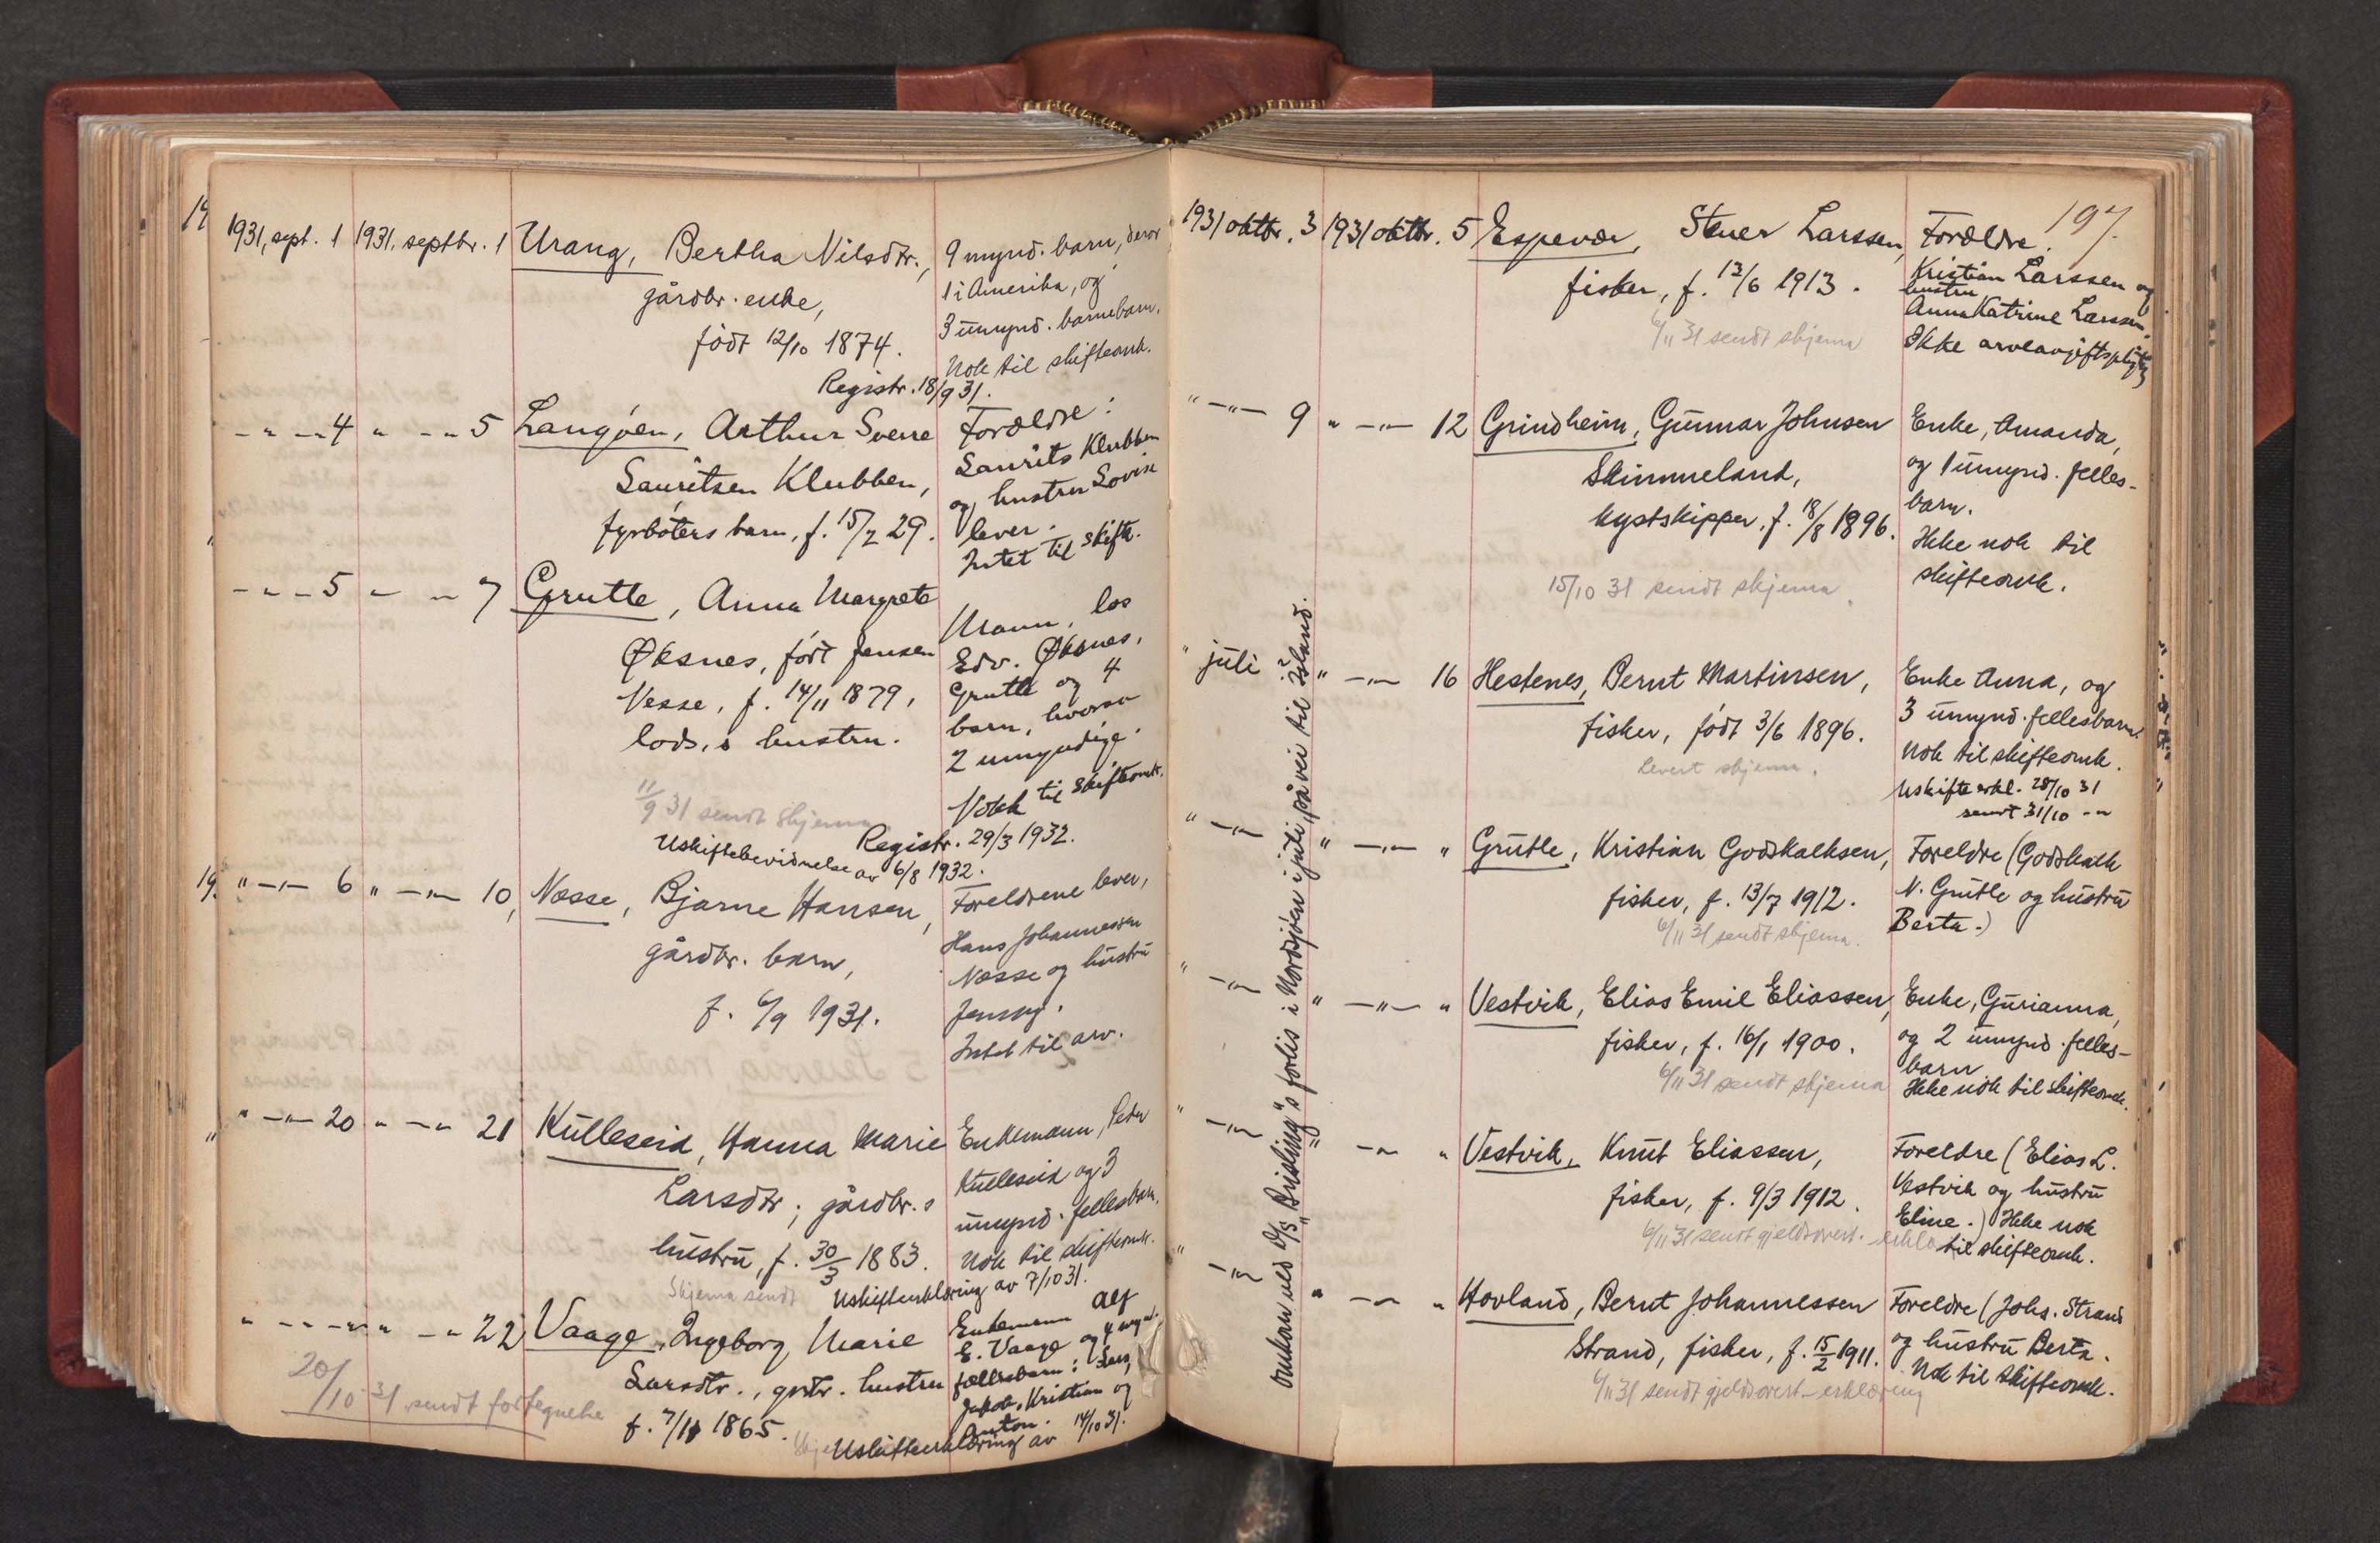 1931, sept. 1 1931, septbr. 1 Urang, Bertha Nilsdtr., 9 mynd. barn, derav
gårdbr. enke, 1 i Amerika, og
født 12/10 1874. 3 umynd. barnebarn.
Nok til skifteomk.
Registr. 18/9 31.
- " - 4 " - " 5 Langøen, Arthur Sverre Forældre:
Lauritsen Klubben, Laurits Klubben
fyrbøters barn, f. 15/7 29. og hustru Lovise
lever.
Intet til skifte.
- " - 5 " - " 7 Grutle, Anna Margrete Mann, los
Øksnes, født Jensen Edv. Øksnes,
Vesse, f. 14/11 1879, Grutle og 4
lods, s hustru. barn, hvorav
2 umyndige.
11/9 31 sendt skjema Nokk til skifteomk.
Registr. 29/3 1932.
Uskiftebevidnelse av 6/8 1932.
" - " - 6 " - " - 10, Næsse, Bjarne Hansen, Foreldrene lever,
gårdbr. barn, Hans Johannessen
f. 6/9 1931. Næsse og hustru
Jenny.
Intet til arv.
" - " - 20 " - " 21 Kulleseid, Hanna Marie Enkemann, Peder
Larsdtr; gårdbr. s Kulleseid og 3
hustru, f. 30/3 1883. umynd. fellesbarn.
Nok til skifteomk.
Skjema sendt Uskifteerklæring av 7/10 31.
" - " - " - " 22 Vaage, Ingeborg Marie Enkemann Alf
Larsdtr., grbr. hustru E. Vaage og 4 mynd.
f. 7/11 1865. fællesbarn: Lars,
Jakob, Kristian og
Anton.
20/10 31 sendt fortegnelse
Uskifteerklæring av 14/10 31.
197.
1931 oktbr. 3 1931 oktbr. 5 Espevær, Stener Larssen, Forældre:
fisker, f. 13/6 1913. Kristian Larssen og
hustru
Anna Katrine Larssen.
6/11 31 sendt skjema Ikke arveavgiftspligtig
" - " - 9 " - " - 12 Grindheim, Gunnar Johnsen Enke, Amanda,
Skimmeland, og 1 umynd. felles-
kystskipper, f. 18/8 1896. barn.
Ikke nok til
15/10 31 sendt skjema. skifteomk.
" juli " - " - 16 Hestenes, Bernt Martinsen, Enke Anna, og
fisker, født 3/6 1896. 3 umynd. fellesbarn.
Levert skjema. Nok til skifteomk.
Uskifteerkl. 28/10 31
sendt 31/10 - "
" - " - " - " - " Grutle, Kristian Godskalksen, Foreldre (Godskalk
fisker, f. 13/7 1912. N. Grutle og hustru
6/11 31 sendt skjema. Berta.)
" - " - " - " - " Vestvik, Elias Emil Eliassen, Enke, Gurianna,
fisker, f. 16/1 1900. og 2 umynd. felles-
barn
6/11 31 sendt skjema Ikke nok til skifteomk.
" - " - " - " - " Vestvik, Knut Eliassen, Foreldre (Elias L.
fisker, f. 9/3 1912. Vestvik og hustru
Eline.) Ikke nok
6/11 31 sendt gjeldsovert. erklæ til skifteomk.
" - " - " - " - " Hovland, Bernt Johannessen Foreldre (Johs. Strand
Strand, fisker, f. 15/2 1911. og hustru Berta.
Nok til skifteomk.
6/11 31 sendt gjeldsovert-erklæring
Omkom ved D/S "Brisling"s forlis i Nordsjøen i juli, på vei til Island.